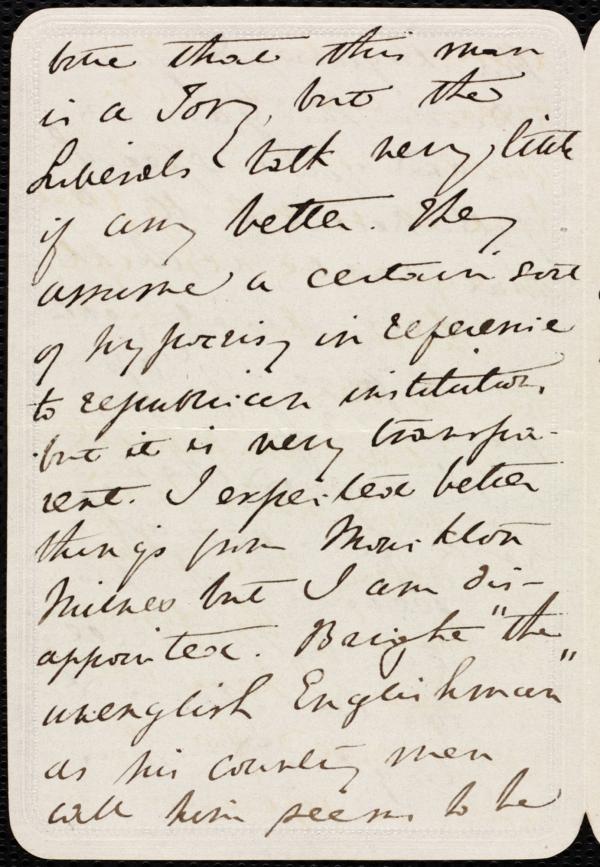 true that this man
is a Tory, but the
Liberals talk very little
if any better. They
assume a certain sort
of hypocrisy in reference
to republican institutions,
but it is very transpa-
rent. I expected better
things from Monckton
Milnes but I am dis-
appointed. Bright "the
unenglish Englishman"
as his country men
call him seems to be